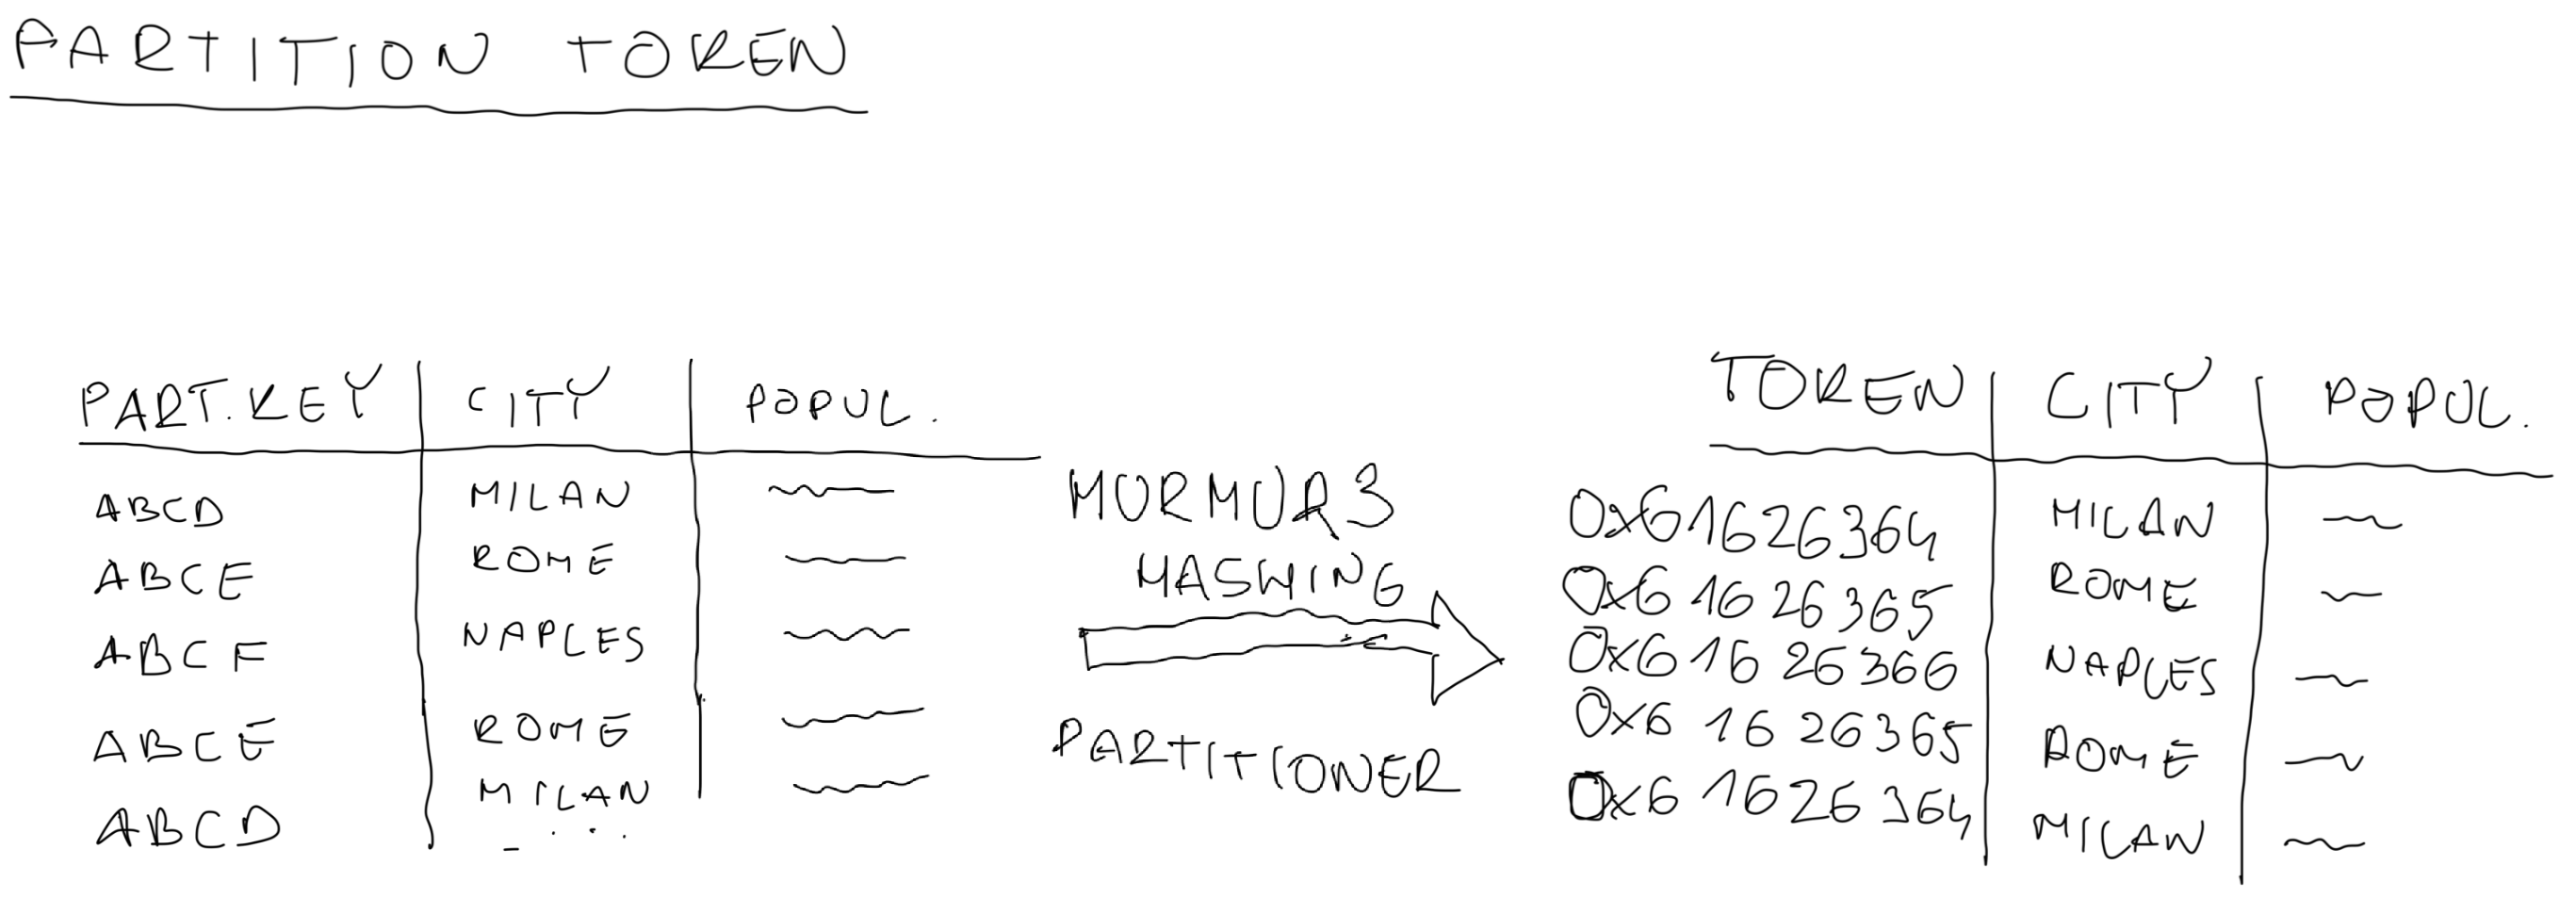 PARTITION TOKEN
PART.KEY CITY POPUL.
ABCD MILAN
ABCE ROME
ABCF NAPLES
ABCE ROME
ABCD MILAN
MURMUR3
HASHING
PARTITIONER
TOKEN CITY POPUL.
0x61626364 MILAN
0x61626365 ROME
0x61626366 NAPLES
0x61626365 ROME
0x61626364 MILAN